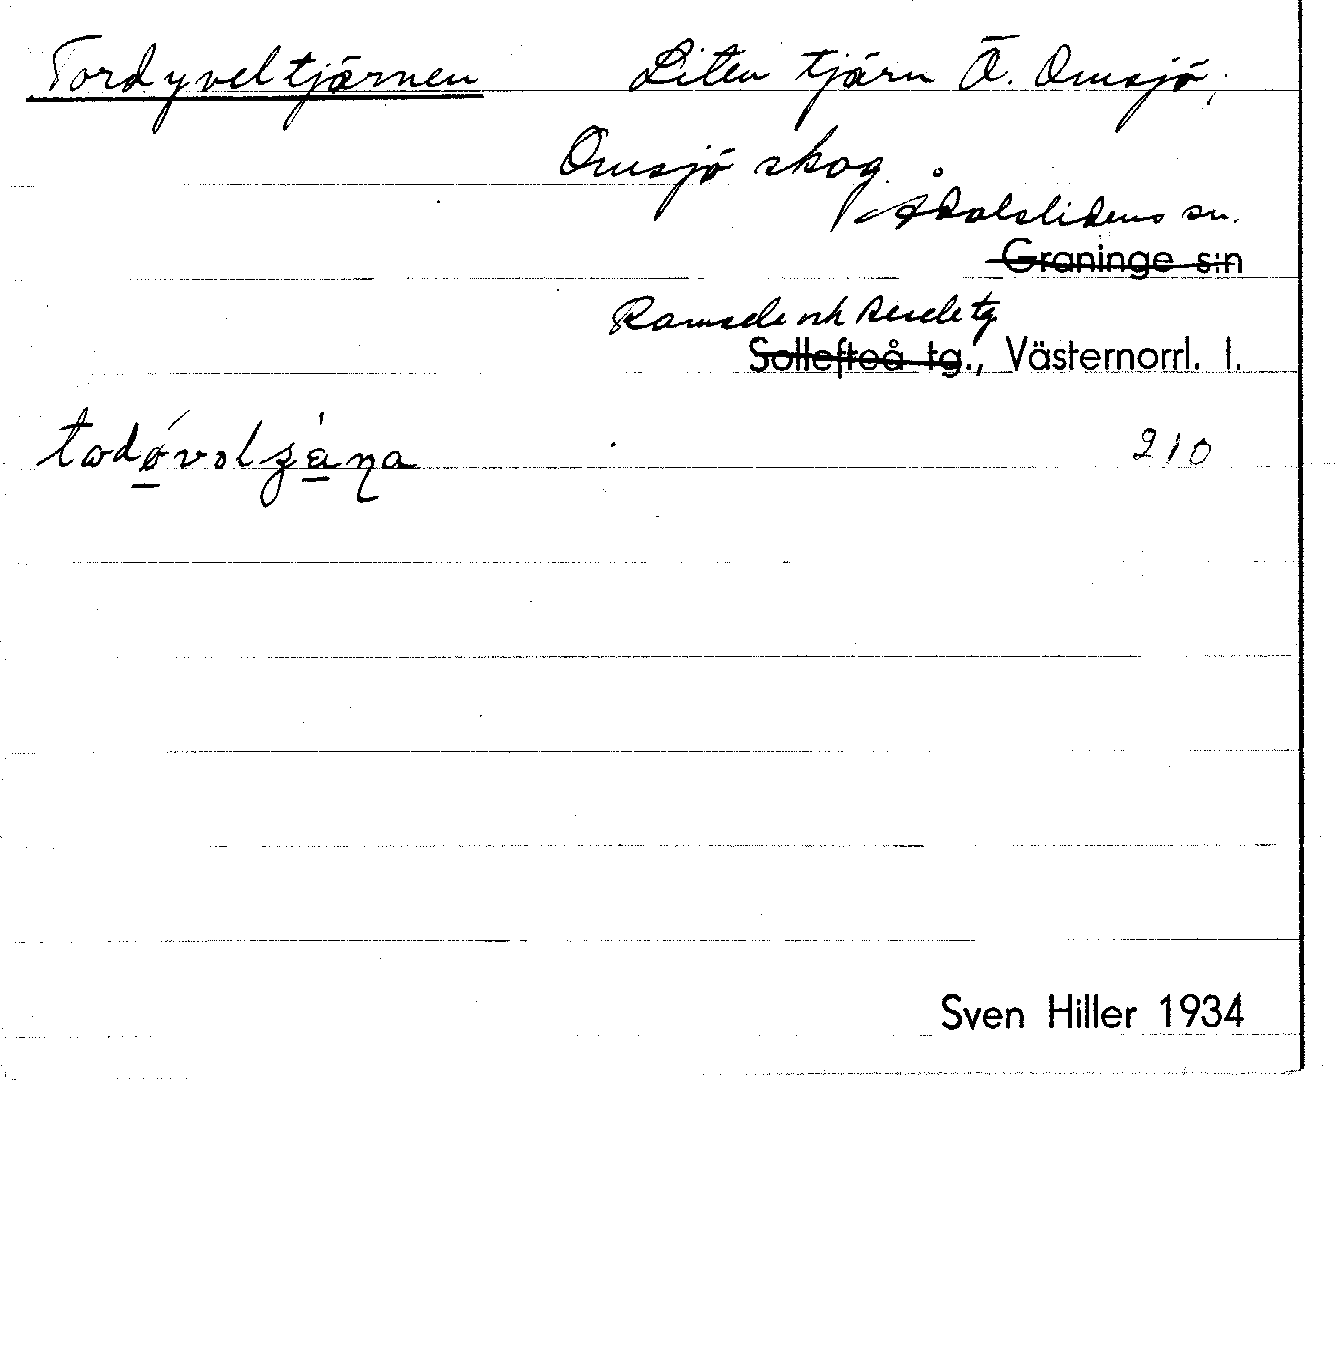 Tordyveltjärnen Liten tjärn Ö. Omsjö,
Omsjö skog.
Ådalslidens sn.
Graninge s:n
Ramsele och Resele tg
Sollefteå tg., Västernorrl. l.
210
Sven Hiller 1934